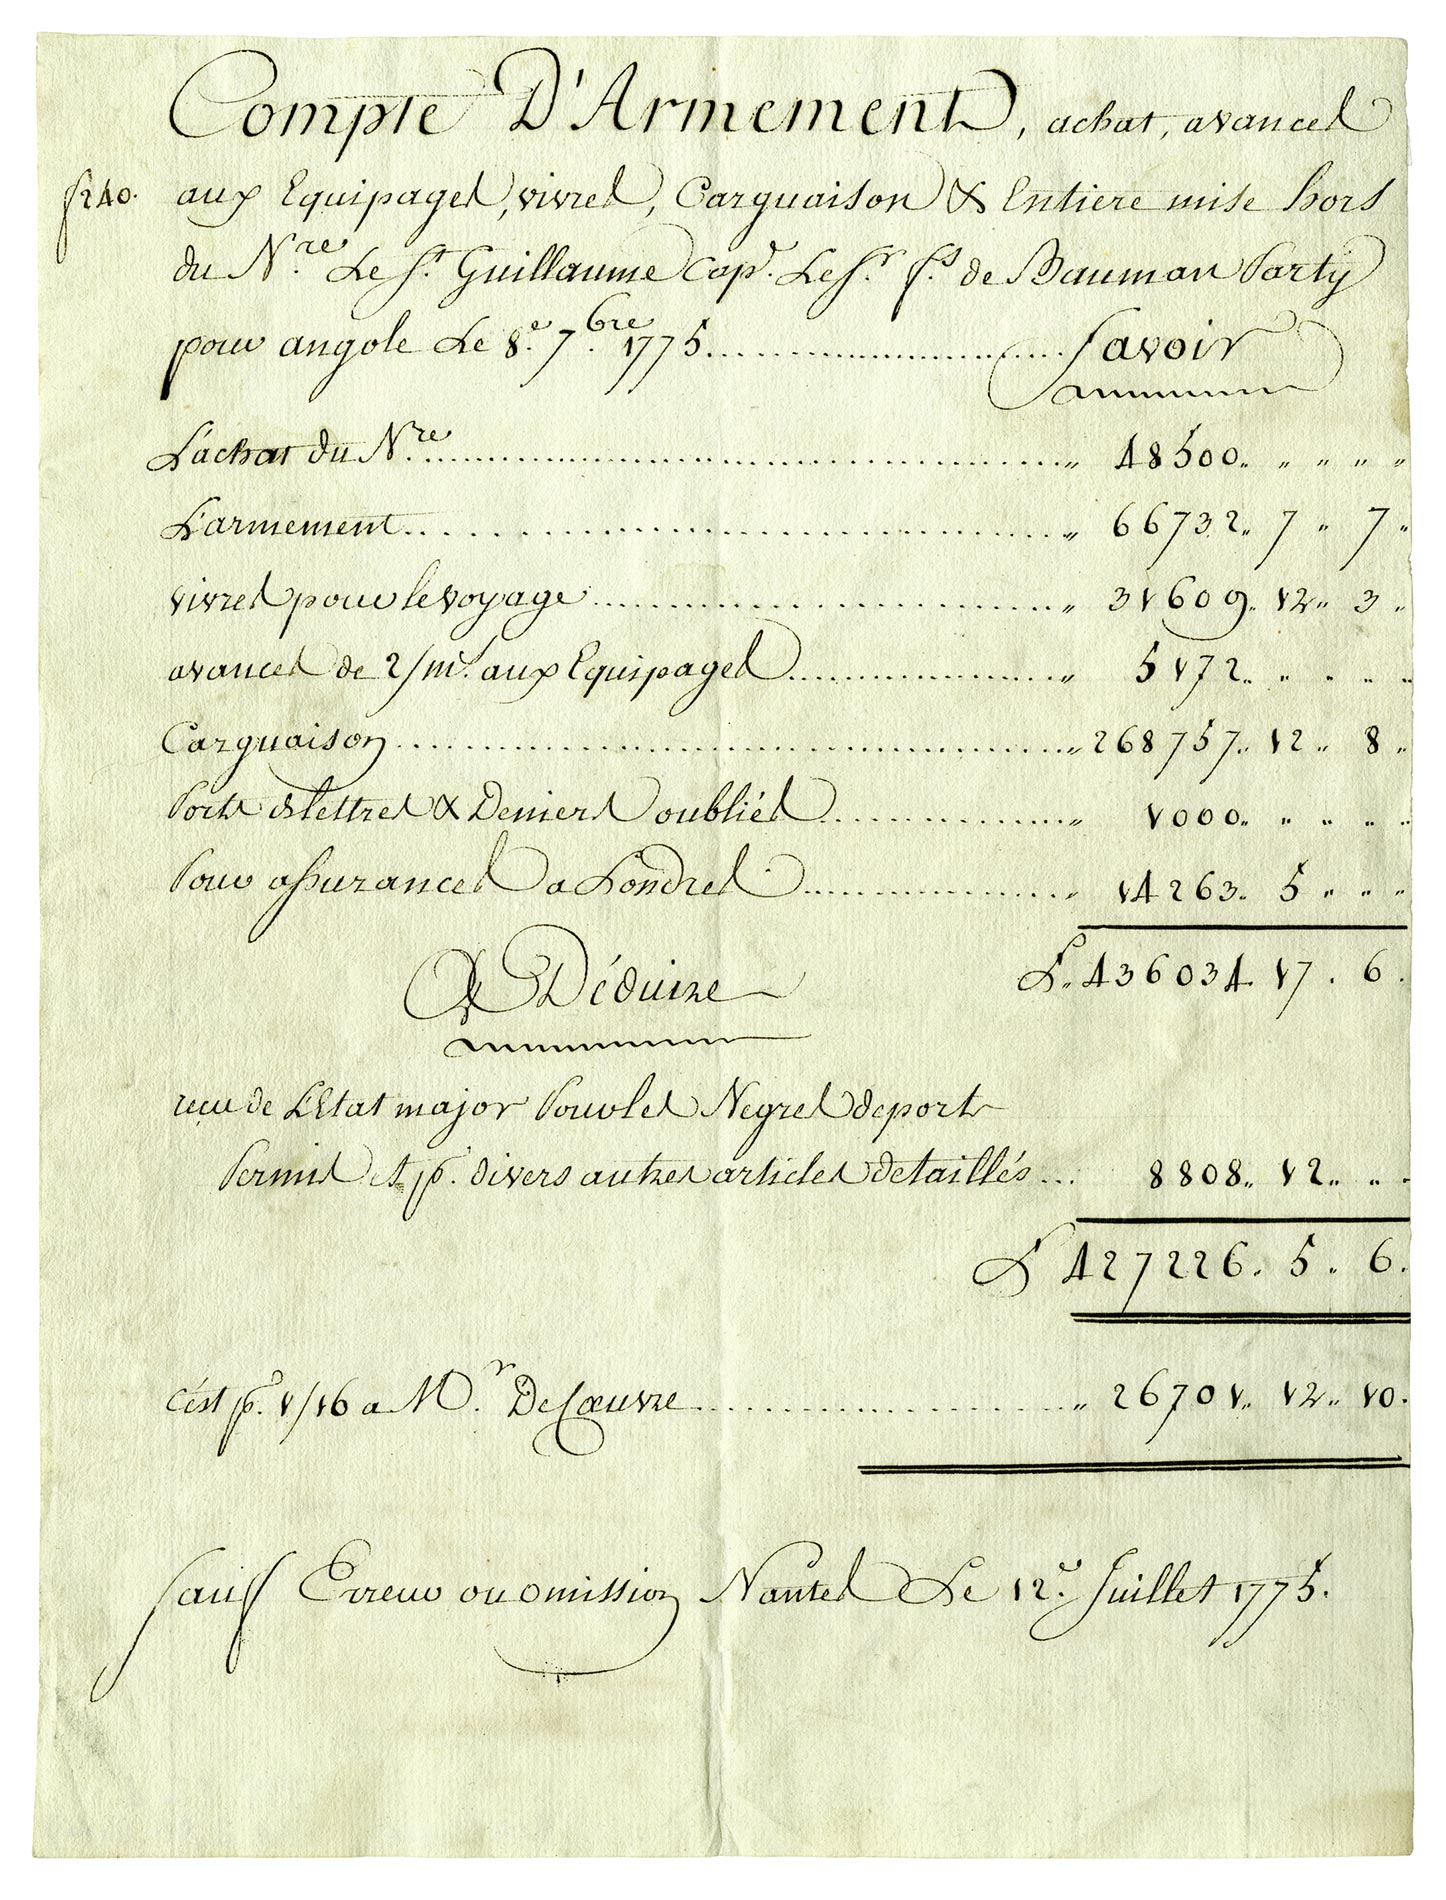 Compte D'Armement, achat, avances
f 240. aux Equipages, vivres, Carguaison & Entiere mise hors
du N.re Le St. Guillaume Cap.e Le Sr. fs. de Bauman Party
pour angole Le 8.e 7.bre 1775 .......... Savoir
L'achat du N.re .......... " 48500. " " " "
L'armement .......... " 66732. 7 " 7 "
vivres pour le voyage .......... " 31609. 12 " 3 "
avances de 2/m. aux Equipages .......... " 5172. " " " "
Carguaison .......... " 268757. 12 " 8 "
Ports de lettres & Deniers oubliés .......... " 1000. " " " "
Pour assurances a Londres .......... " 14263. 5 " " "
L. 436034. 17. 6.
A Déduire
reçu de L'Etat major Pour les Negres de ports
Permis et p. divers autres articles detaillés ... 8808. 12. " "
L 427226. 5. 6.
C'est p. 1/16 a M.r De Coeuvre .......... " 26701. 12. 10.
Sauf Erreur ou omission Nantes Le 12.e Juillet 1775.